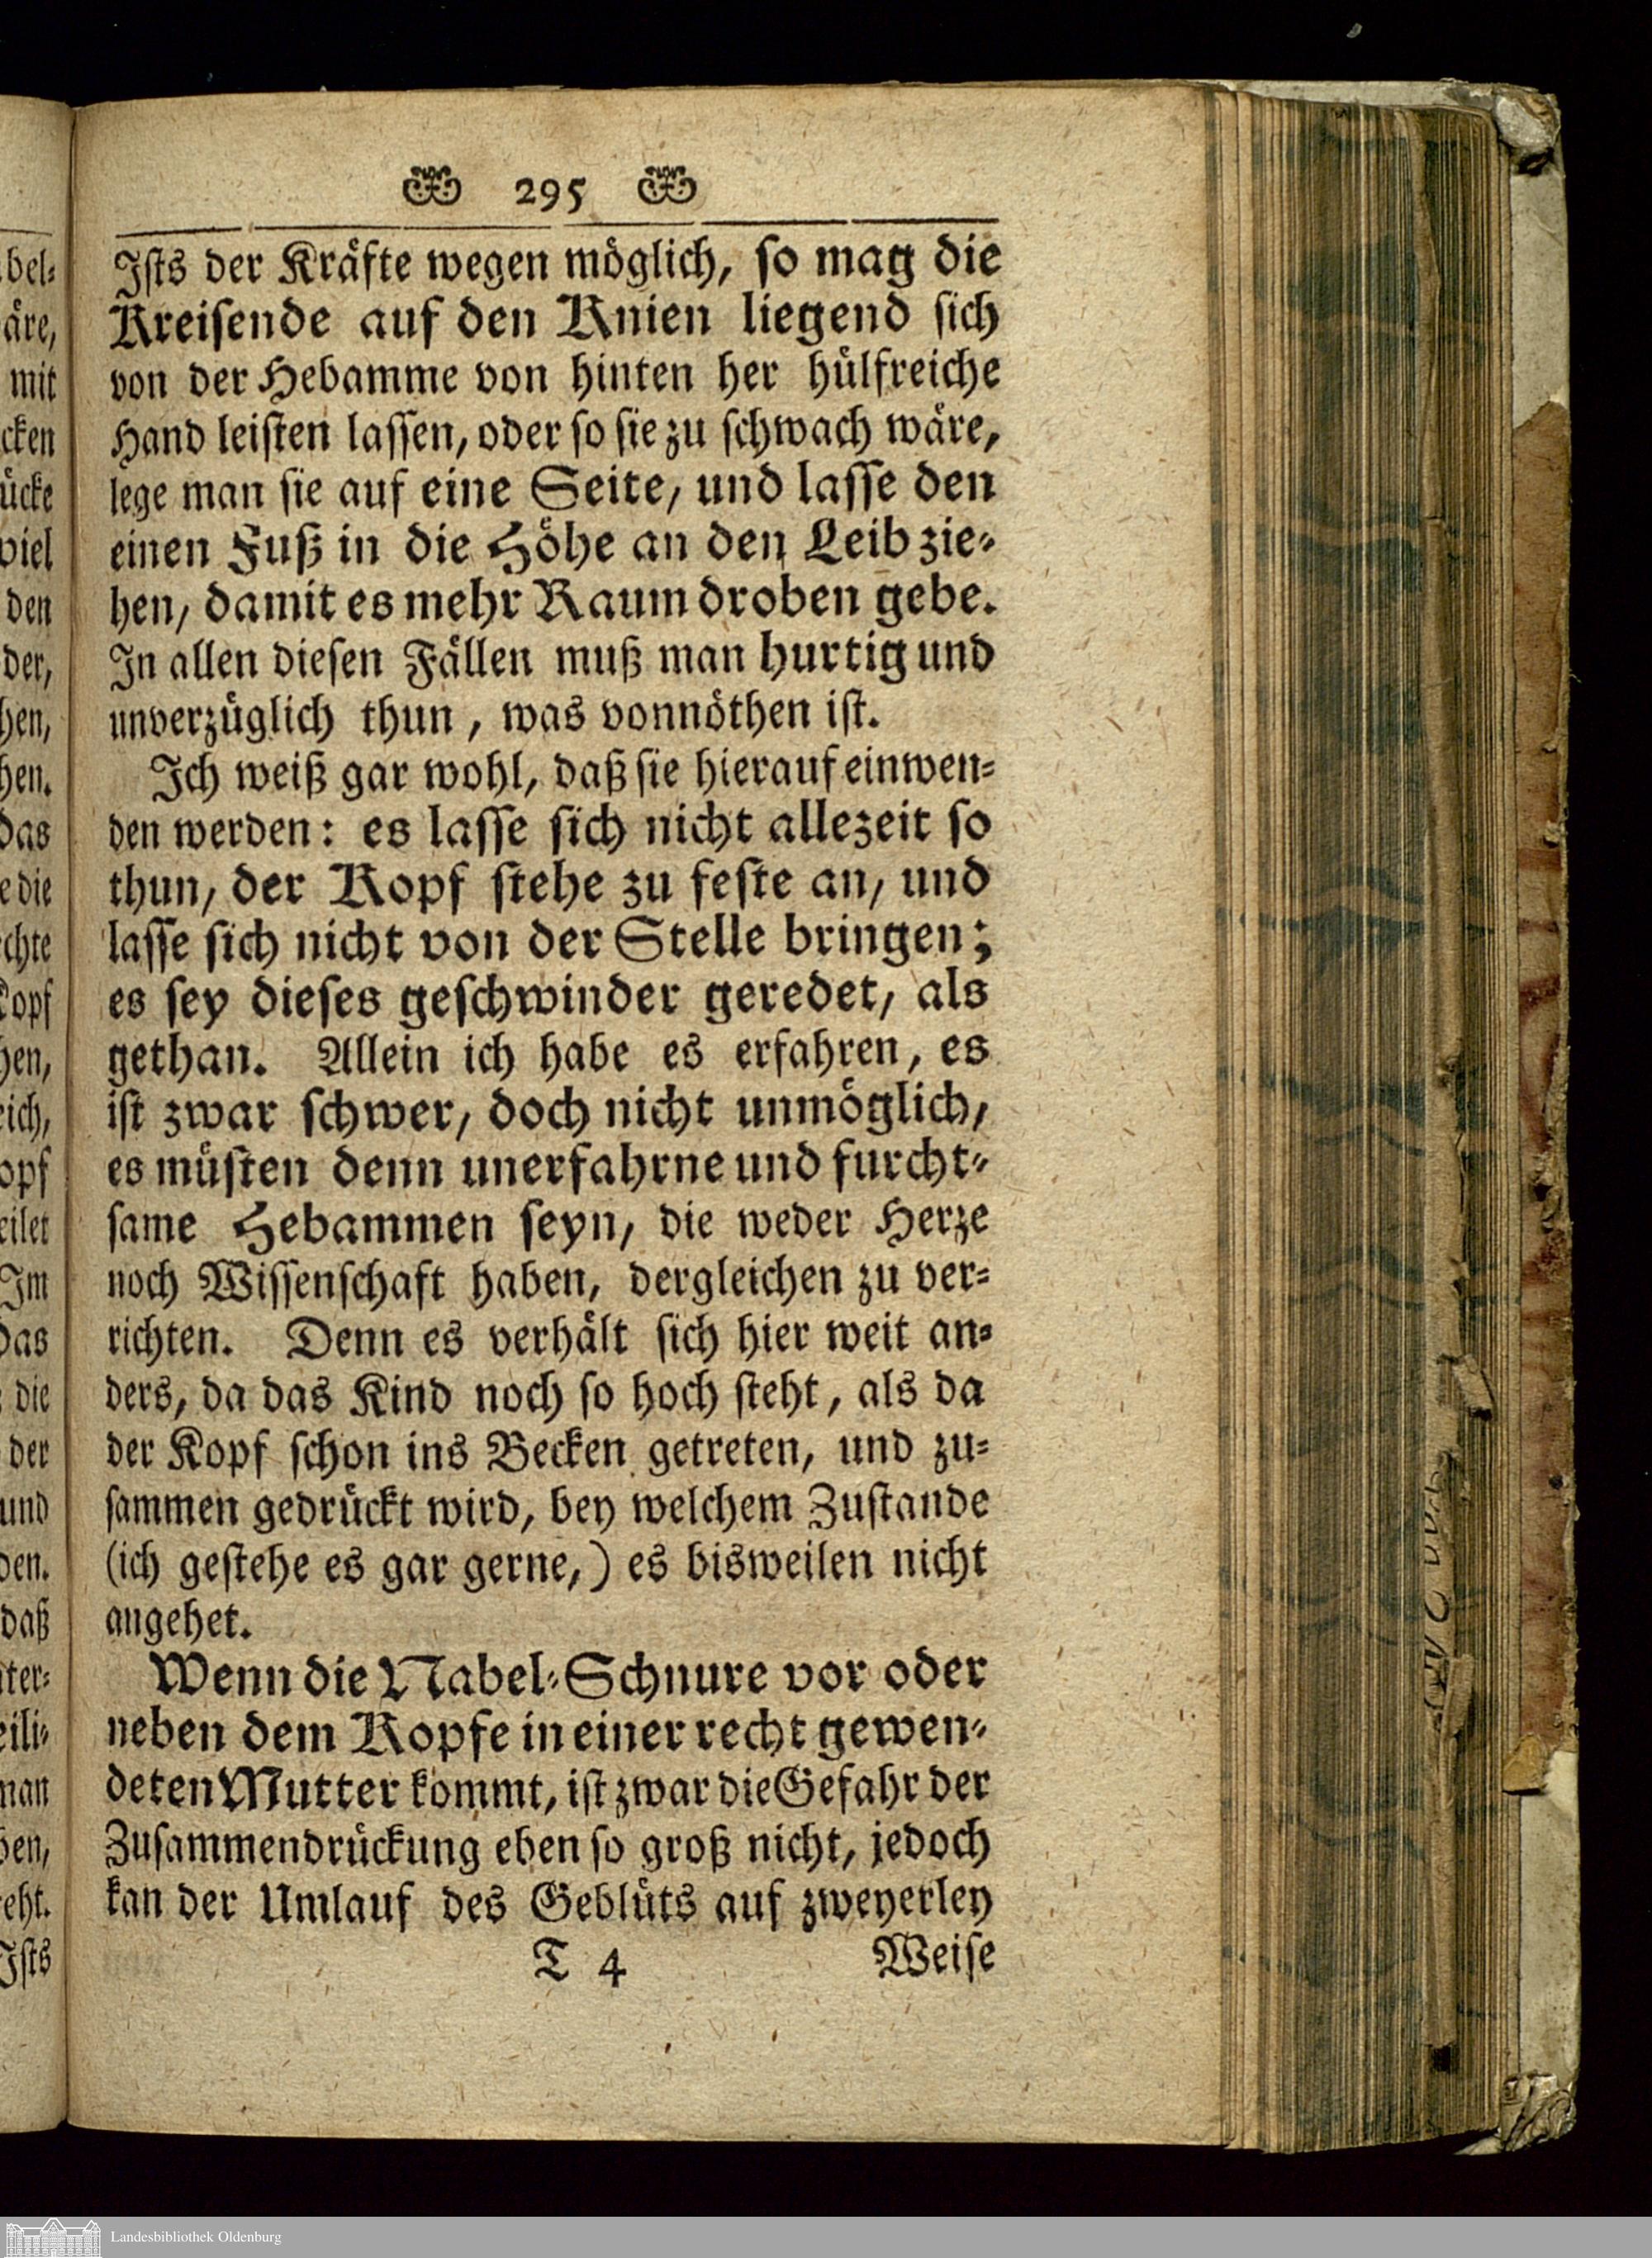 295
Ists der Kräfte wegen möglich, so mag die
Kreisende auf den Knien liegend sich
von der Hebamme von hinten her hülfreiche
Hand leisten lassen, oder so sie zu schwach wäre,
lege man sie auf eine Seite, und lasse den
einen Fuß in die Höhe an den Leib zie-
hen, damit es mehr Raum droben gebe.
In allen diesen Fällen muß man hurtig und
unverzüglich thun, was vonnöthen ist.
Ich weiß gar wohl, daß sie hierauf einwen-
den werden: es lasse sich nicht allezeit so
thun, der Kopf stehe zu feste an, und
lasse sich nicht von der Stelle bringen;
es sey dieses geschwinder geredet, als
gethan. Allein ich habe es erfahren, es
ist zwar schwer, doch nicht unmöglich,
es müsten denn unerfahrne und furcht-
same Hebammen seyn, die weder Herze
noch Wissenschaft haben, dergleichen zu ver-
richten. Denn es verhält sich hier weit an-
ders, da das Kind noch so hoch steht, als da
der Kopf schon ins Becken getreten, und zu-
sammen gedrückt wird, bey welchem Zustande
(ich gestehe es gar gerne,) es bisweilen nicht
angehet.
Wenn die Nabel-Schnure vor oder
neben dem Kopfe in einer recht gewen-
deten Mutter kommt, ist zwar die Gefahr der
Zusammendrückung eben so groß nicht, jedoch
kan der Umlauf des Geblüts auf zweyerley
T 4 Weise
Landesbibliothek Oldenburg